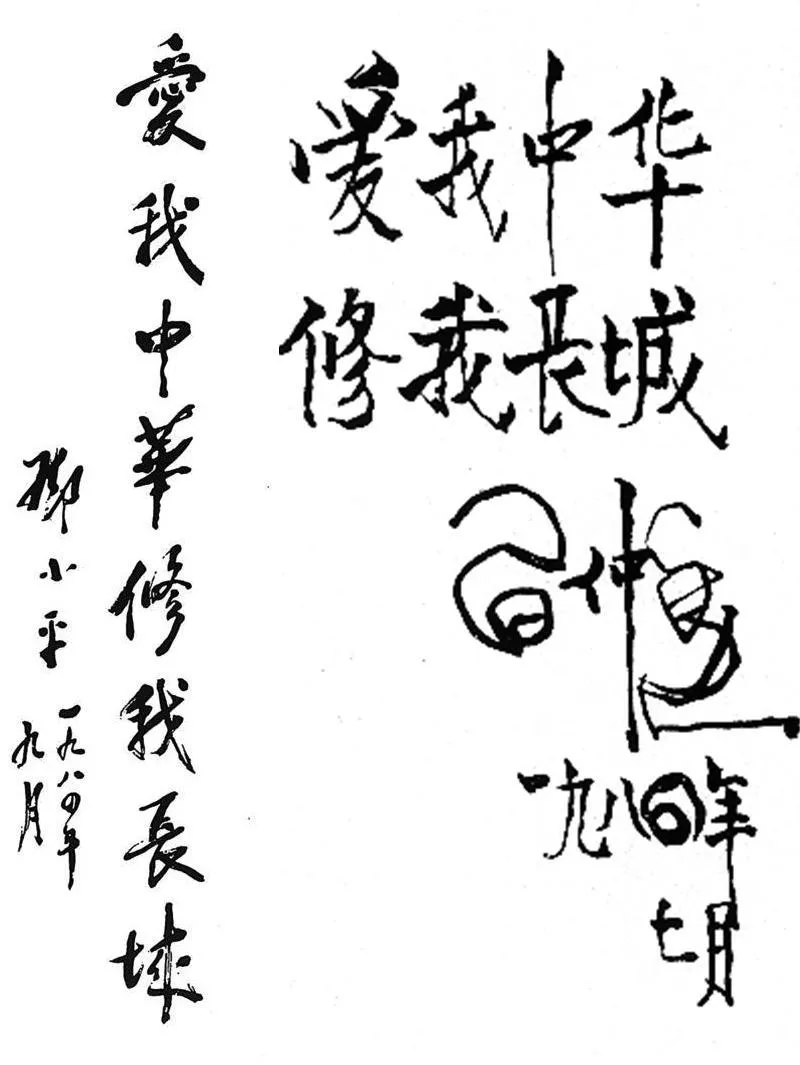 愛我中華修我長城
鄧小平
一九八四年
九月
愛我中华
修我長城
習仲勋
一九八四年
七月